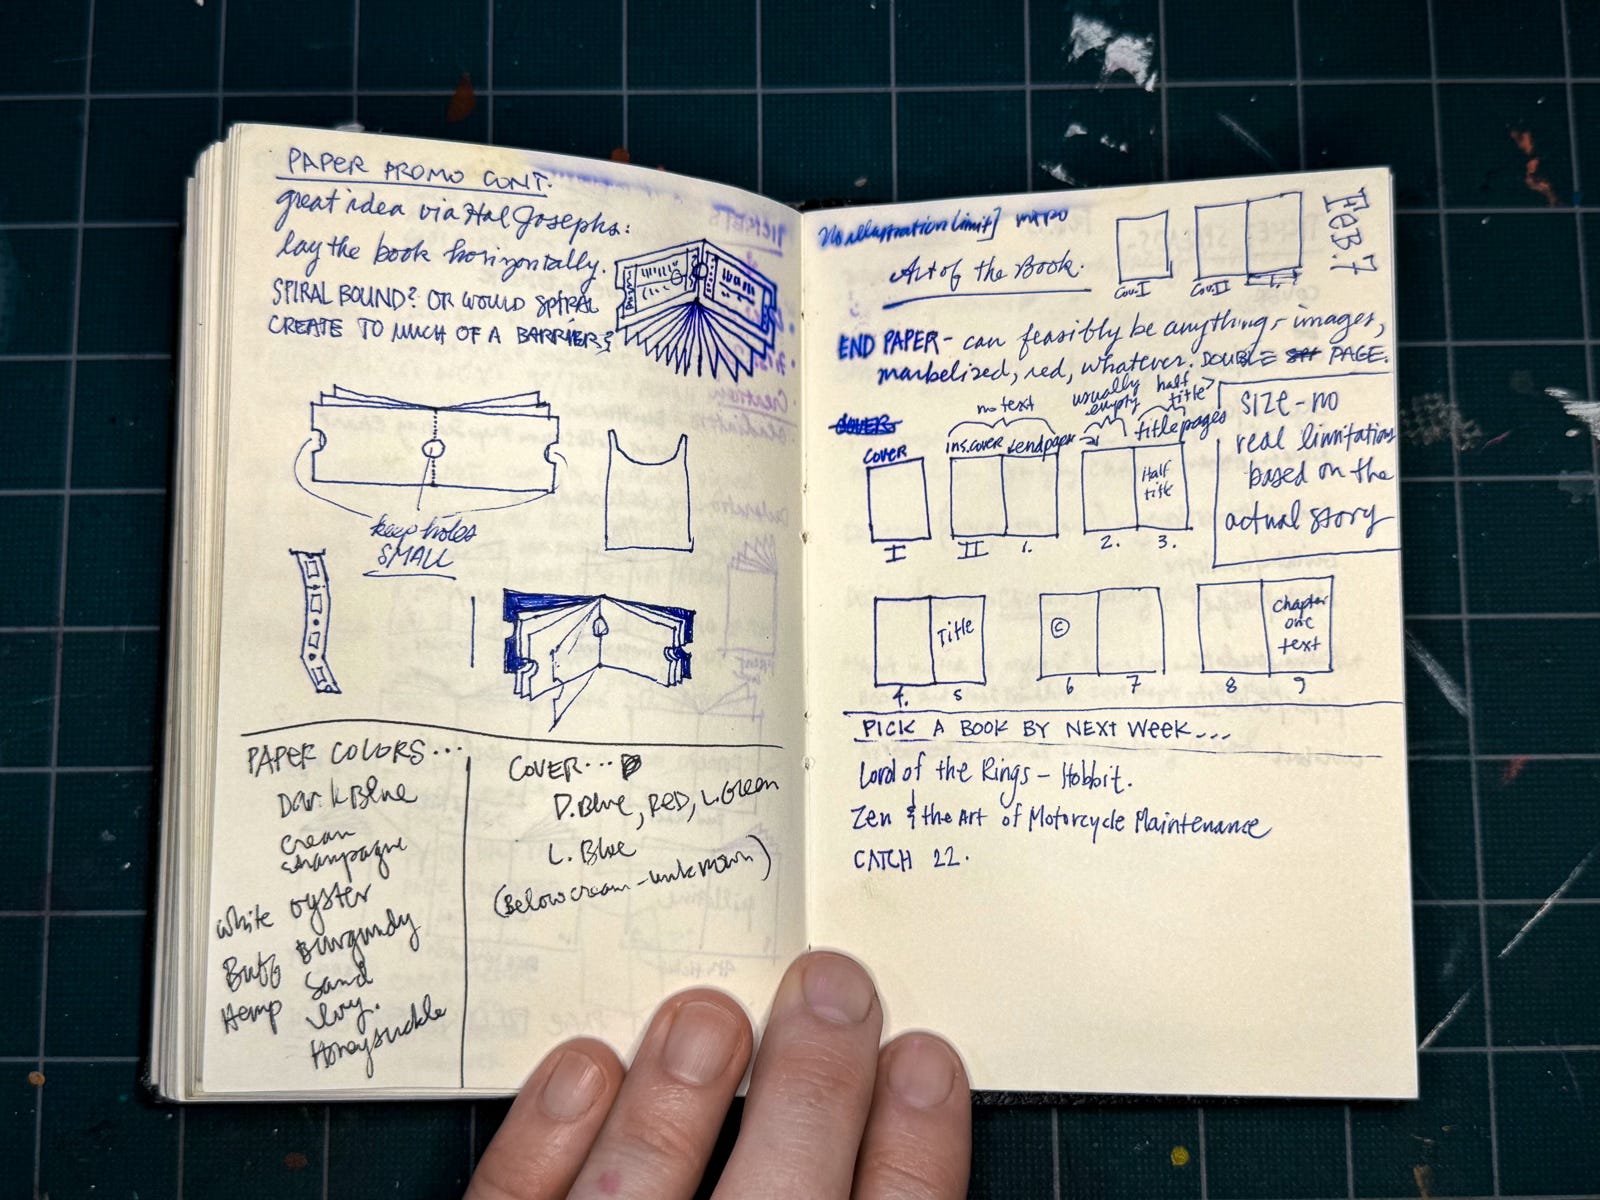 PAPER PROMO CONT.
great idea via Hal Josephs:
lay the book horizontally.
SPIRAL BOUND? OR WOULD SPIRAL
CREATE TO MUCH OF A BARRIER?
keep holes
SMALL
PAPER COLORS...
Dark Blue
cream
champagne
White oyster
Burgundy
Buff Sand
Hemp Ivy.
Honeysuckle
COVER...
D.Blue, RED, L.Green
L. Blue
(Below cream - unknown)
FEB. 7
No illustration limit]
Art of the Book.
Cov. I
Cov. II
1.
END PAPER - can feasibly be anything - images,
marbelized, red, whatever. DOUBLE PAGE.
COVER
no text
usually
empty
half
title
COVER
ins. cover
endpaper
title pages
Half
title
I
II
1.
2.
3.
SIZE - no
real limitations
based on the
actual story
Title
©
Chapter
one
text
4.
5
6
7
8
9
PICK A BOOK BY NEXT WEEK...
Lord of the Rings - Hobbit.
Zen & the Art of Motorcycle Maintenance
CATCH 22.